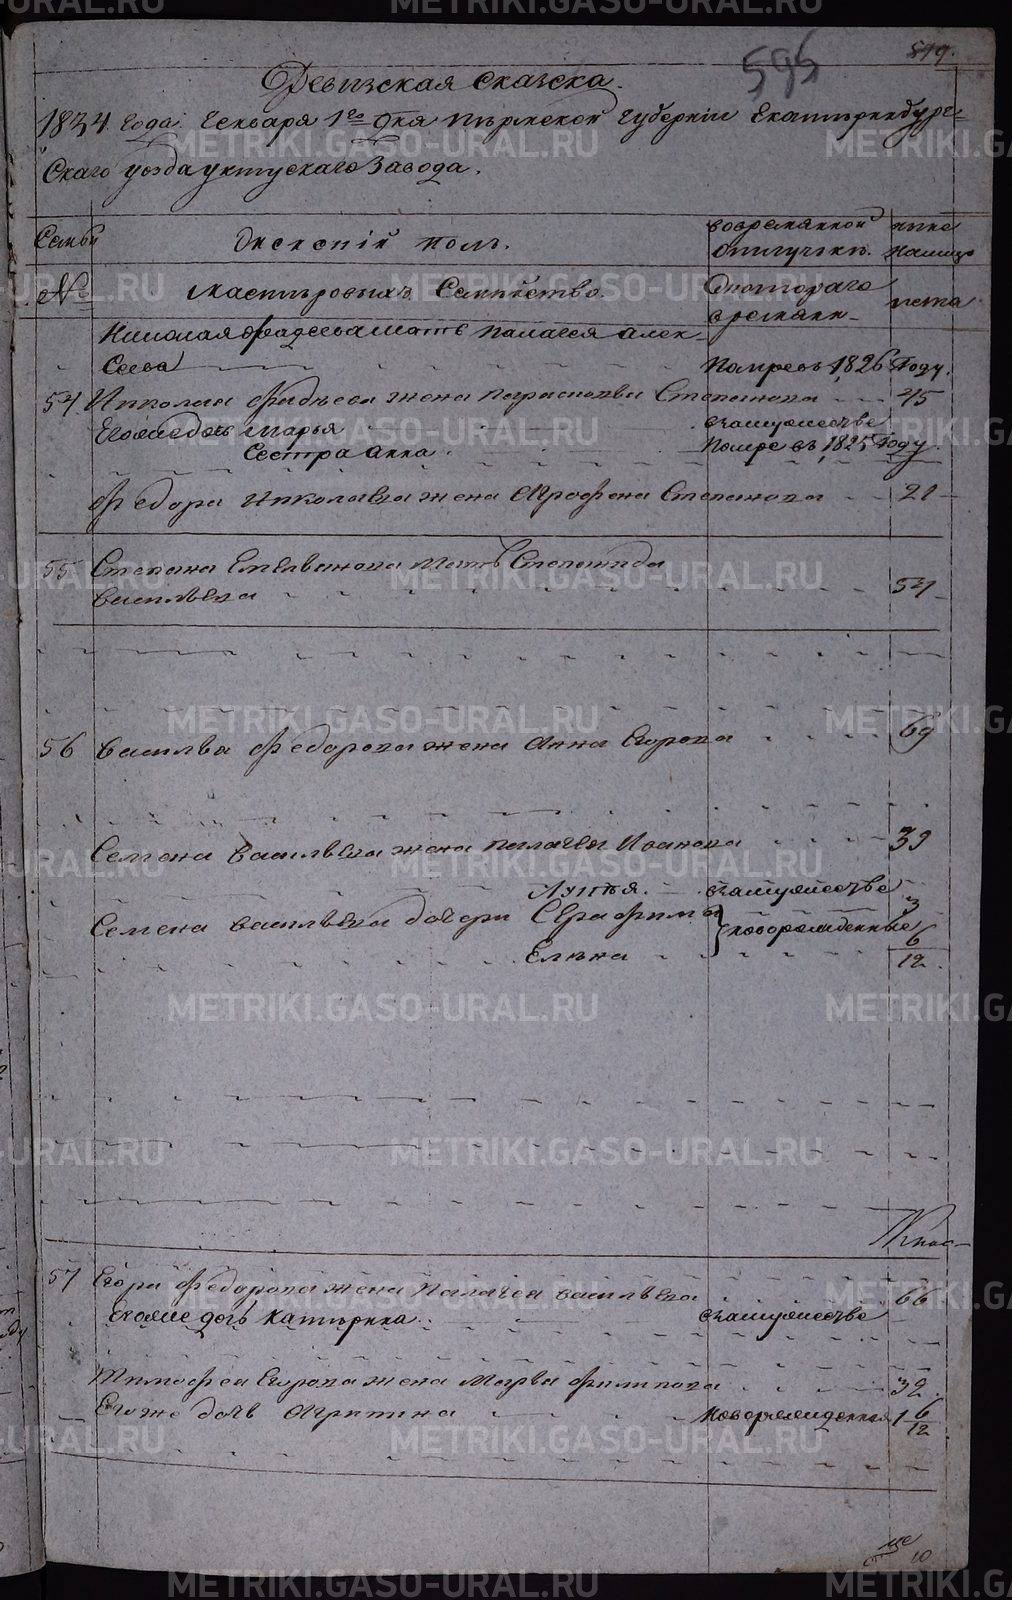 595
519.
Ревизская сказска.
1834 года Генваря 1го дня Пермской Губернии Екатеринбург=
скаго уезда уктускаго Завода.
Семьи Женский пол. вовременной ныне
отлучьке. налицо
№ мастеровыхъ Семейство Скотораго лета
времяни
Николая Фадеева мать Палагея Алек-
сеева Помре въ 1826 Году.
54 Николая Фадеева жена Парасковья Степанова 45
Егоже дочь Марья взамужестве
Сестра Анна Помре въ 1825 Году.
Федора Николаева жена Афрофена Степанова 21
55 Степана Емельянова мать Степанида
Васильева 54
56 Василья Федорова жена Анна Егорова 69
Семена Васильева жена Палагея Иванова 39
Лупья. взамужестве
Семена Васильева дочери Серафима новорожденные 3
Елена 6/12
Кнас-
57 Егора Федорова жена Палагея Васильева 66
Егоже дочь Катерина взамужестве
Тимофея Егорова жена Марья Филипова 32
Егоже дочь Агрипина новорожденная 1 6/12
10
METRIKI.GASO-URAL.RU